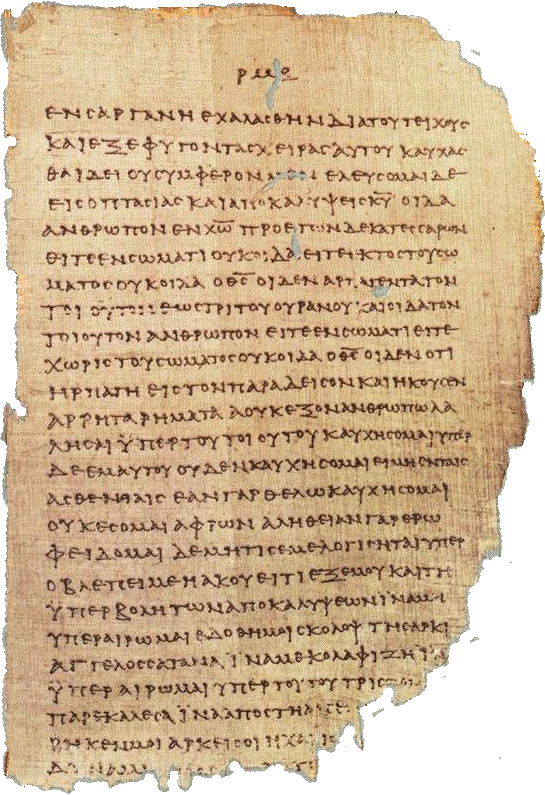 ΡΜΕ
ΕΝϹΑΡΓΑΝΗ ΕΧΑΛΑϹΘΗΝ ΔΙΑΤΟΥΤΕΙΧΟΥϹ
ΚΑΙΕΞΕΦΥΓΟΝΤΑϹΧΕΙΡΑϹΑΥΤΟΥ ΚΑΥΧΑϹ
ΘΑΙΔΕΙ ΟΥϹΥΜΦΕΡΟΝ ΕΛΕΥϹΟΜΑΙΔΕ
ΕΙϹΟΠΤΑϹΙΑϹ ΚΑΙΑΠΟΚΑΛΥΨΕΙϹΚ̅Υ̅ ΟΙΔΑ
ΑΝΘΡΩΠΟΝ ΕΝΧ̅Ω̅ ΠΡΟΕΤΩΝΔΕΚΑΤΕϹϹΑΡΩΝ
ΕΙΤΕΕΝϹΩΜΑΤΙ ΟΥΚΟΙΔΑ ΕΙΤΕΙΚΤΟϹΤΟΥϹΩ
ΜΑΤΟϹΟΥΚΟΙΔΑ ΟΘ̅Ϲ̅ ΟΙΔΕΝ ΑΡΠΑΓΕΝΤΑΤΟΝ
ΤΟΙΟΥΤΟΝΕΩϹΤΡΙΤΟΥΟΥΡΑΝΟΥ ΚΑΙΟΙΔΑΤΟΝ
ΤΟΙΟΥΤΟΝ ΑΝΘΡΩΠΟΝ ΕΙΤΕΕΝϹΩΜΑΤΙ ΕΙΤΕ
ΧΩΡΙϹ ΤΟΥϹΩΜΑΤΟϹΟΥΚΟΙΔΑ ΟΘ̅Ϲ̅ ΟΙΔΕΝ ΟΤΙ
ΗΡΠΑΓΗ ΕΙϹΤΟΝΠΑΡΑΔΕΙϹΟΝ ΚΑΙΗΚΟΥϹΕΝ
ΑΡΡΗΤΑ ΡΗΜΑΤΑ ΑΟΥΚΕΞΟΝΑΝΘΡΩΠΩΛΑ
ΛΗϹΑΙ ΫΠΕΡΤΟΥΤΟΙΟΥΤΟΥ ΚΑΥΧΗϹΟΜΑΙΥΠΕΡ
ΔΕΕΜΑΥΤΟΥ ΟΥΔΕΝΚΑΥΧΗϹΟΜΑΙΕΙΜΗΕΝΤΑΙϹ
ΑϹΘΕΝΕΙΑΙϹ ΕΑΝΓΑΡΘΕΛΩΚΑΥΧΗϹΟΜΑΙ
ΟΥΚΕϹΟΜΑΙ ΑΦΡΩΝ ΑΛΗΘΕΙΑΝΓΑΡΕΡΩ
ΦΕΙΔΟΜΑΙ ΔΕΜΗΤΙϹΕΜΕΛΟΓΙϹΗΤΑΙΥΠΕΡ
ΟΒΛΕΠΕΙΜΕΗΑΚΟΥΕΙΤΙΕΞΕΜΟΥ ΚΑΙΤΗ
ΫΠΕΡΒΟΛΗΤΩΝΑΠΟΚΑΛΥΨΕΩΝΪΝΑΜΗ
ΥΠΕΡΑΙΡΩΜΑΙ ΕΔΟΘΗΜΟΙϹΚΟΛΟΨ ΤΗϹΑΡΚΙ
ΑΓΓΕΛΟϹϹΑΤΑΝΑ ΪΝΑΜΕΚΟΛΑΦΙΖΗ
ΫΠΕΡΑΙΡΩΜΑΙ ΥΠΕΡΤΟΥΤΟΥΤΡΙϹ
ΠΑΡΕΚΑΛΕϹΑ ΪΝΑΑΠΟϹΤΗ
ΡΗΚΕΝΜΟΙ ΑΡΚΕΙϹΟΙ ΗΧΑΡΙϹ